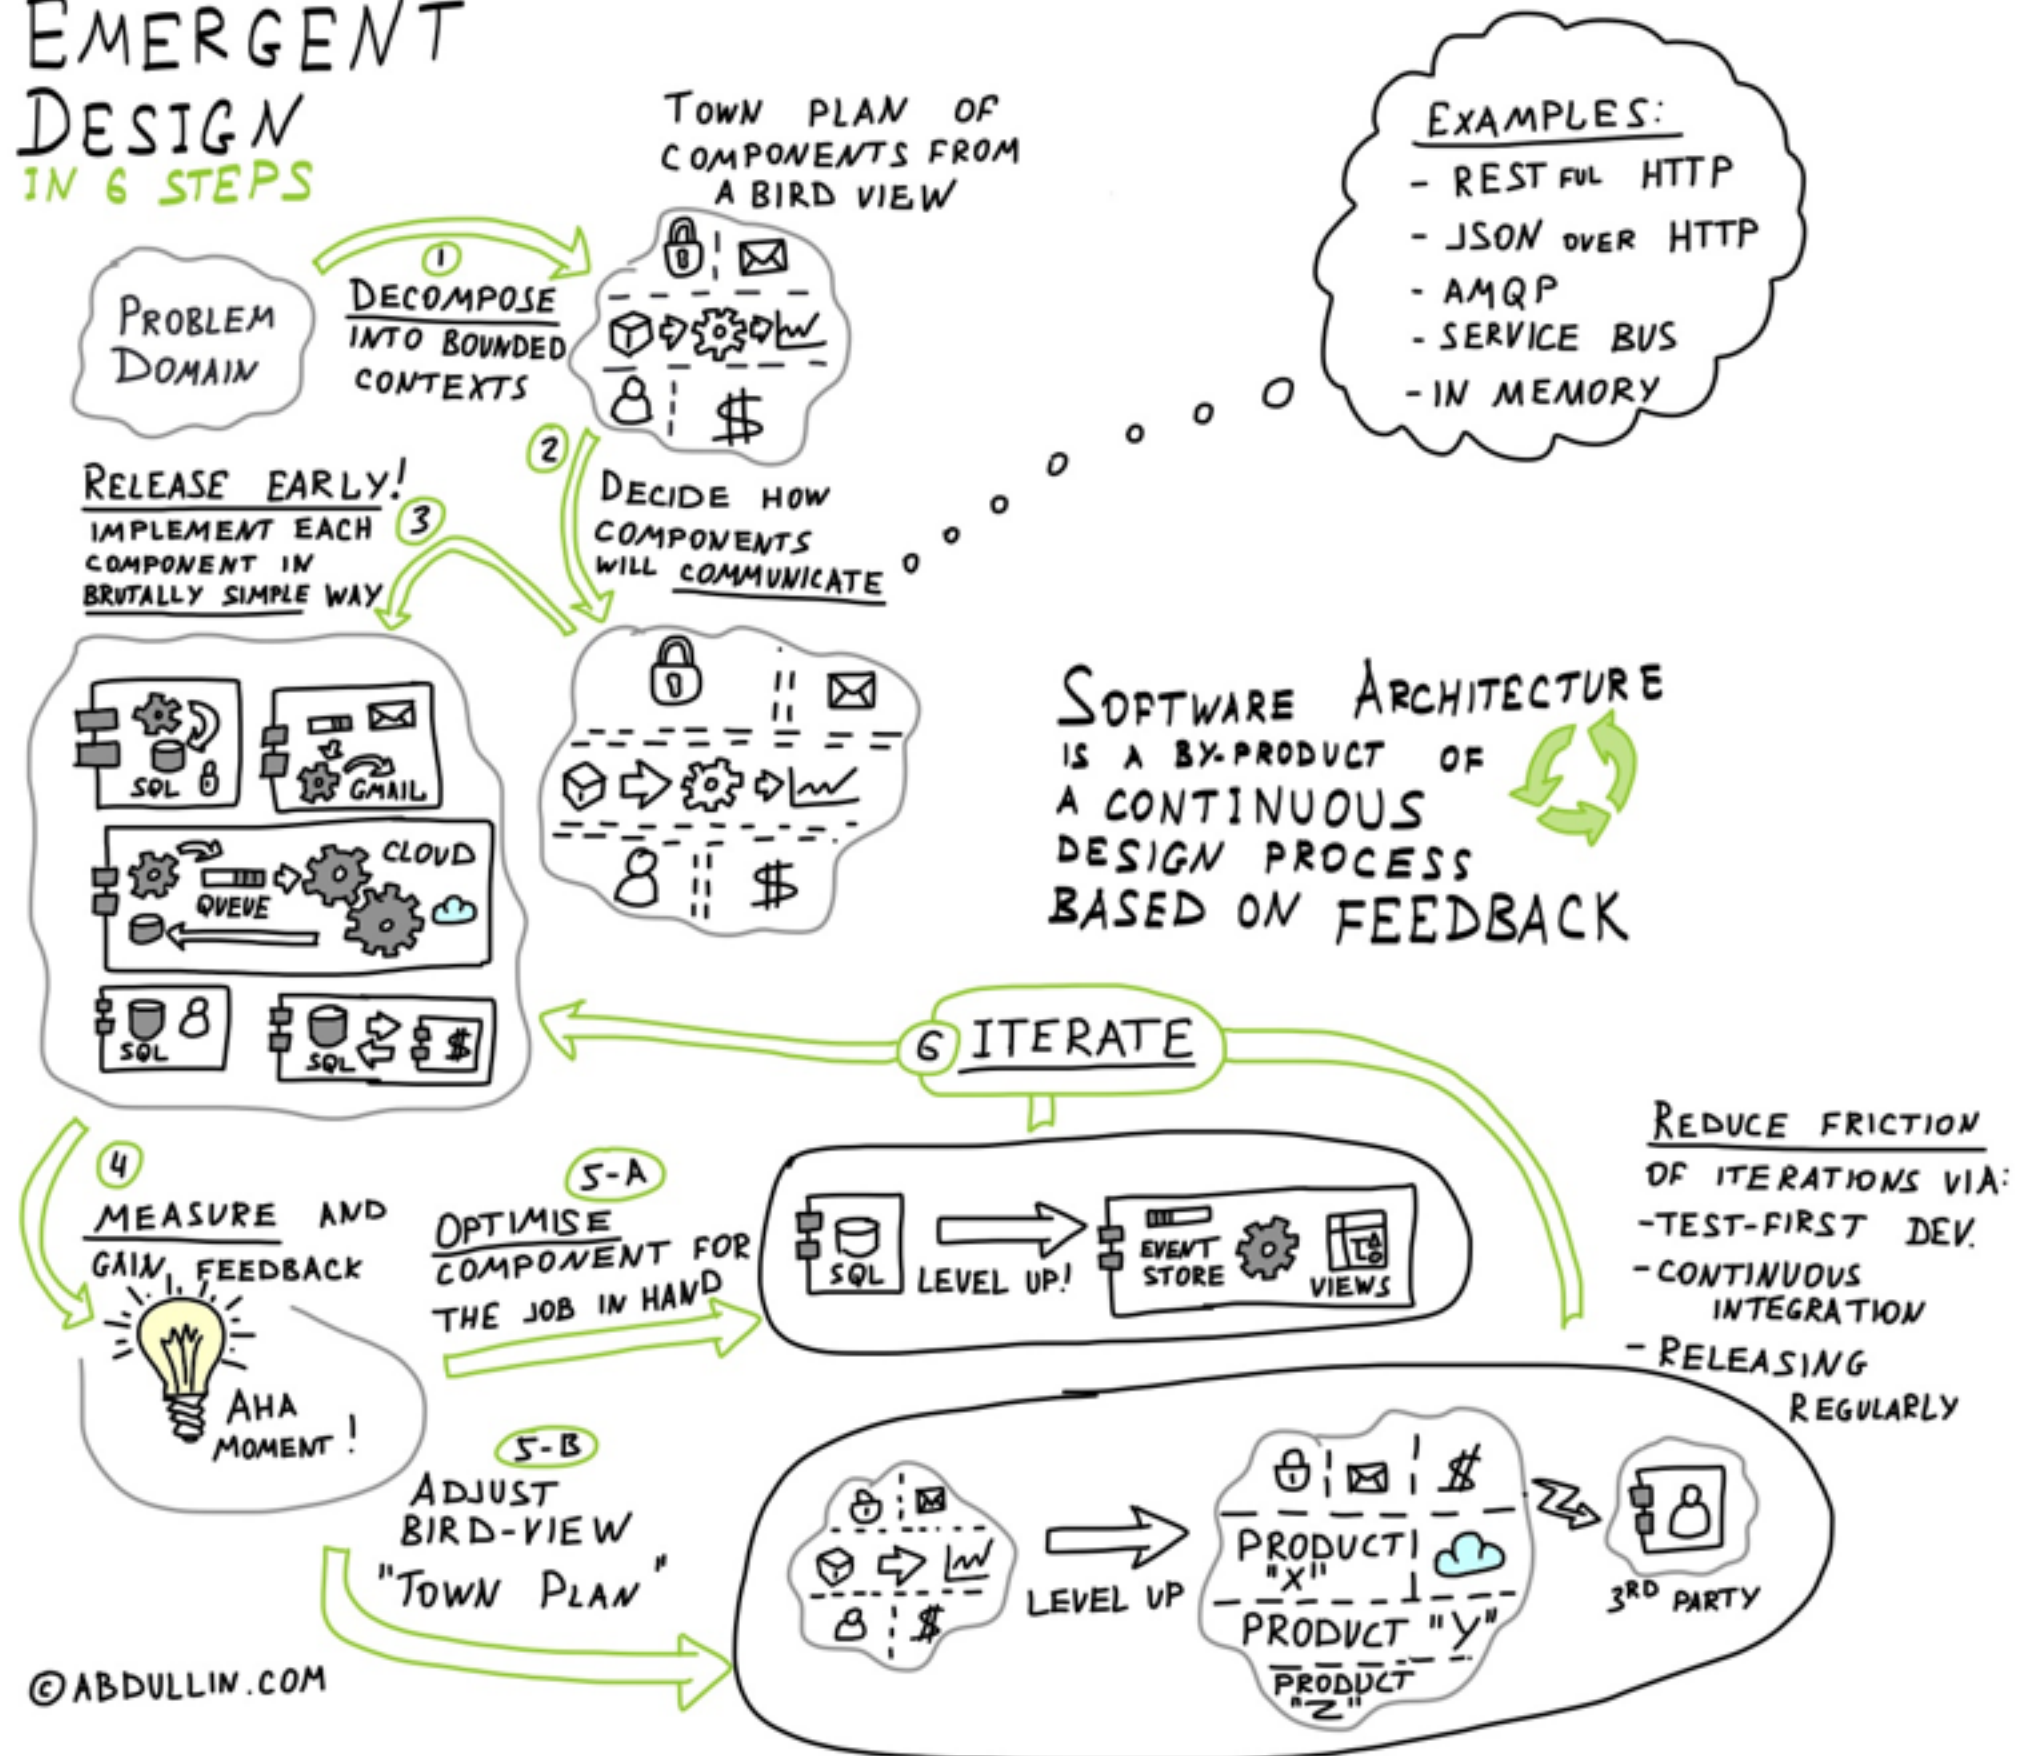 EMERGENT
DESIGN
IN 6 STEPS
PROBLEM
DOMAIN
1
DECOMPOSE
INTO BOUNDED
CONTEXTS
TOWN PLAN OF
COMPONENTS FROM
A BIRD VIEW
$
EXAMPLES:
- RESTFUL HTTP
- JSON OVER HTTP
- AMQP
- SERVICE BUS
- IN MEMORY
2
DECIDE HOW
COMPONENTS
WILL COMMUNICATE
$
RELEASE EARLY!
3
IMPLEMENT EACH
COMPONENT IN
BRUTALLY SIMPLE WAY
SQL
GMAIL
CLOUD
QUEUE
SQL
SQL
$
SOFTWARE ARCHITECTURE
IS A BY-PRODUCT OF
A CONTINUOUS
DESIGN PROCESS
BASED ON FEEDBACK
6 ITERATE
4
MEASURE AND
GAIN FEEDBACK
AHA
MOMENT!
5-A
OPTIMISE
COMPONENT FOR
THE JOB IN HAND
SQL
LEVEL UP!
EVENT
STORE
VIEWS
REDUCE FRICTION
OF ITERATIONS VIA:
-TEST-FIRST DEV.
- CONTINUOUS
INTEGRATION
- RELEASING
REGULARLY
5-B
ADJUST
BIRD-VIEW
"TOWN PLAN"
$
LEVEL UP
$
PRODUCT
"X"
PRODUCT "Y"
PRODUCT
"Z"
3RD PARTY
©ABDULLIN.COM